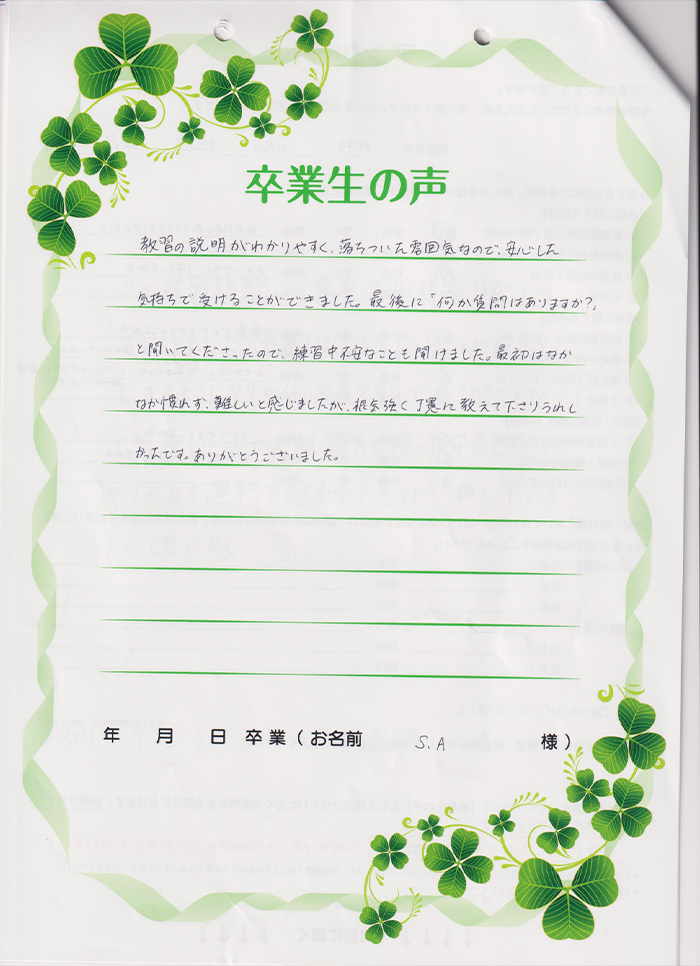 卒業生の声
教習の説明がわかりやすく、落ちついた雰囲気なので、安心した
気持ちで受けることができました。最後に「何か質問はありますか?」
と聞いてくださったので、練習中不安なことも聞けました。最初はなか
なか慣れず、難しいと感じましたが、根気強く丁寧に教えて下さりうれし
かったです。ありがとうございました。
年 月 日 卒業(お名前 S.A 様)